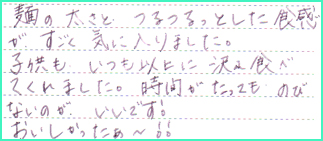 麺の太さと つるつるっとした食感
がすごく気に入りました。
子供も いつも以上に 沢山食べ
てくれました。時間がたっても のび
ないのが いいです!
おいしかったぁ〜!!